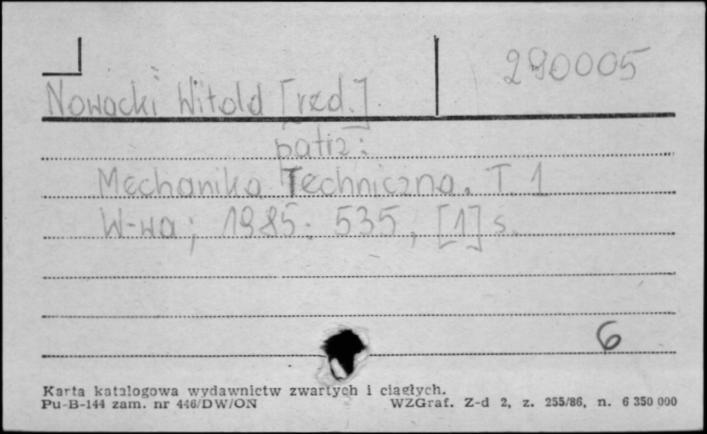 290005
Nowacki Witold [red.]
patrz:
Mechanika Techniczna. T. 1
W-wa; 1985. 535, [1] s.
6
Karta katalogowa wydawnictw zwartych i ciągłych.
Pu-B-144 zam. nr 446/DW/ON WZGraf. Z-d 2, z. 255/86, n. 6 350 000